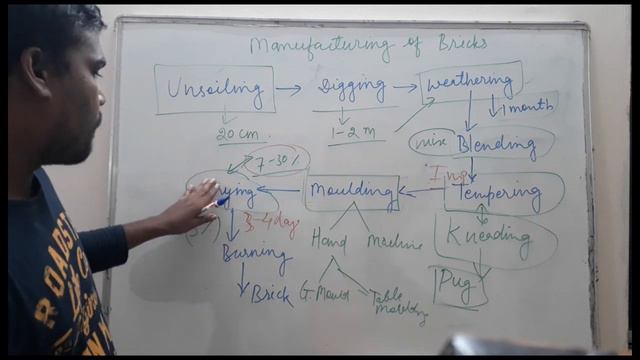 Manufacturing of Bricks
Unsoiling → Digging → Weathering
20 cm 1-2 m 1 month
mix Blending
7-30%
Moulding Tempering
3-4 day
Burning Hand Machine Kneading
Brick G-Mould Table Moulding Pug
ROADST